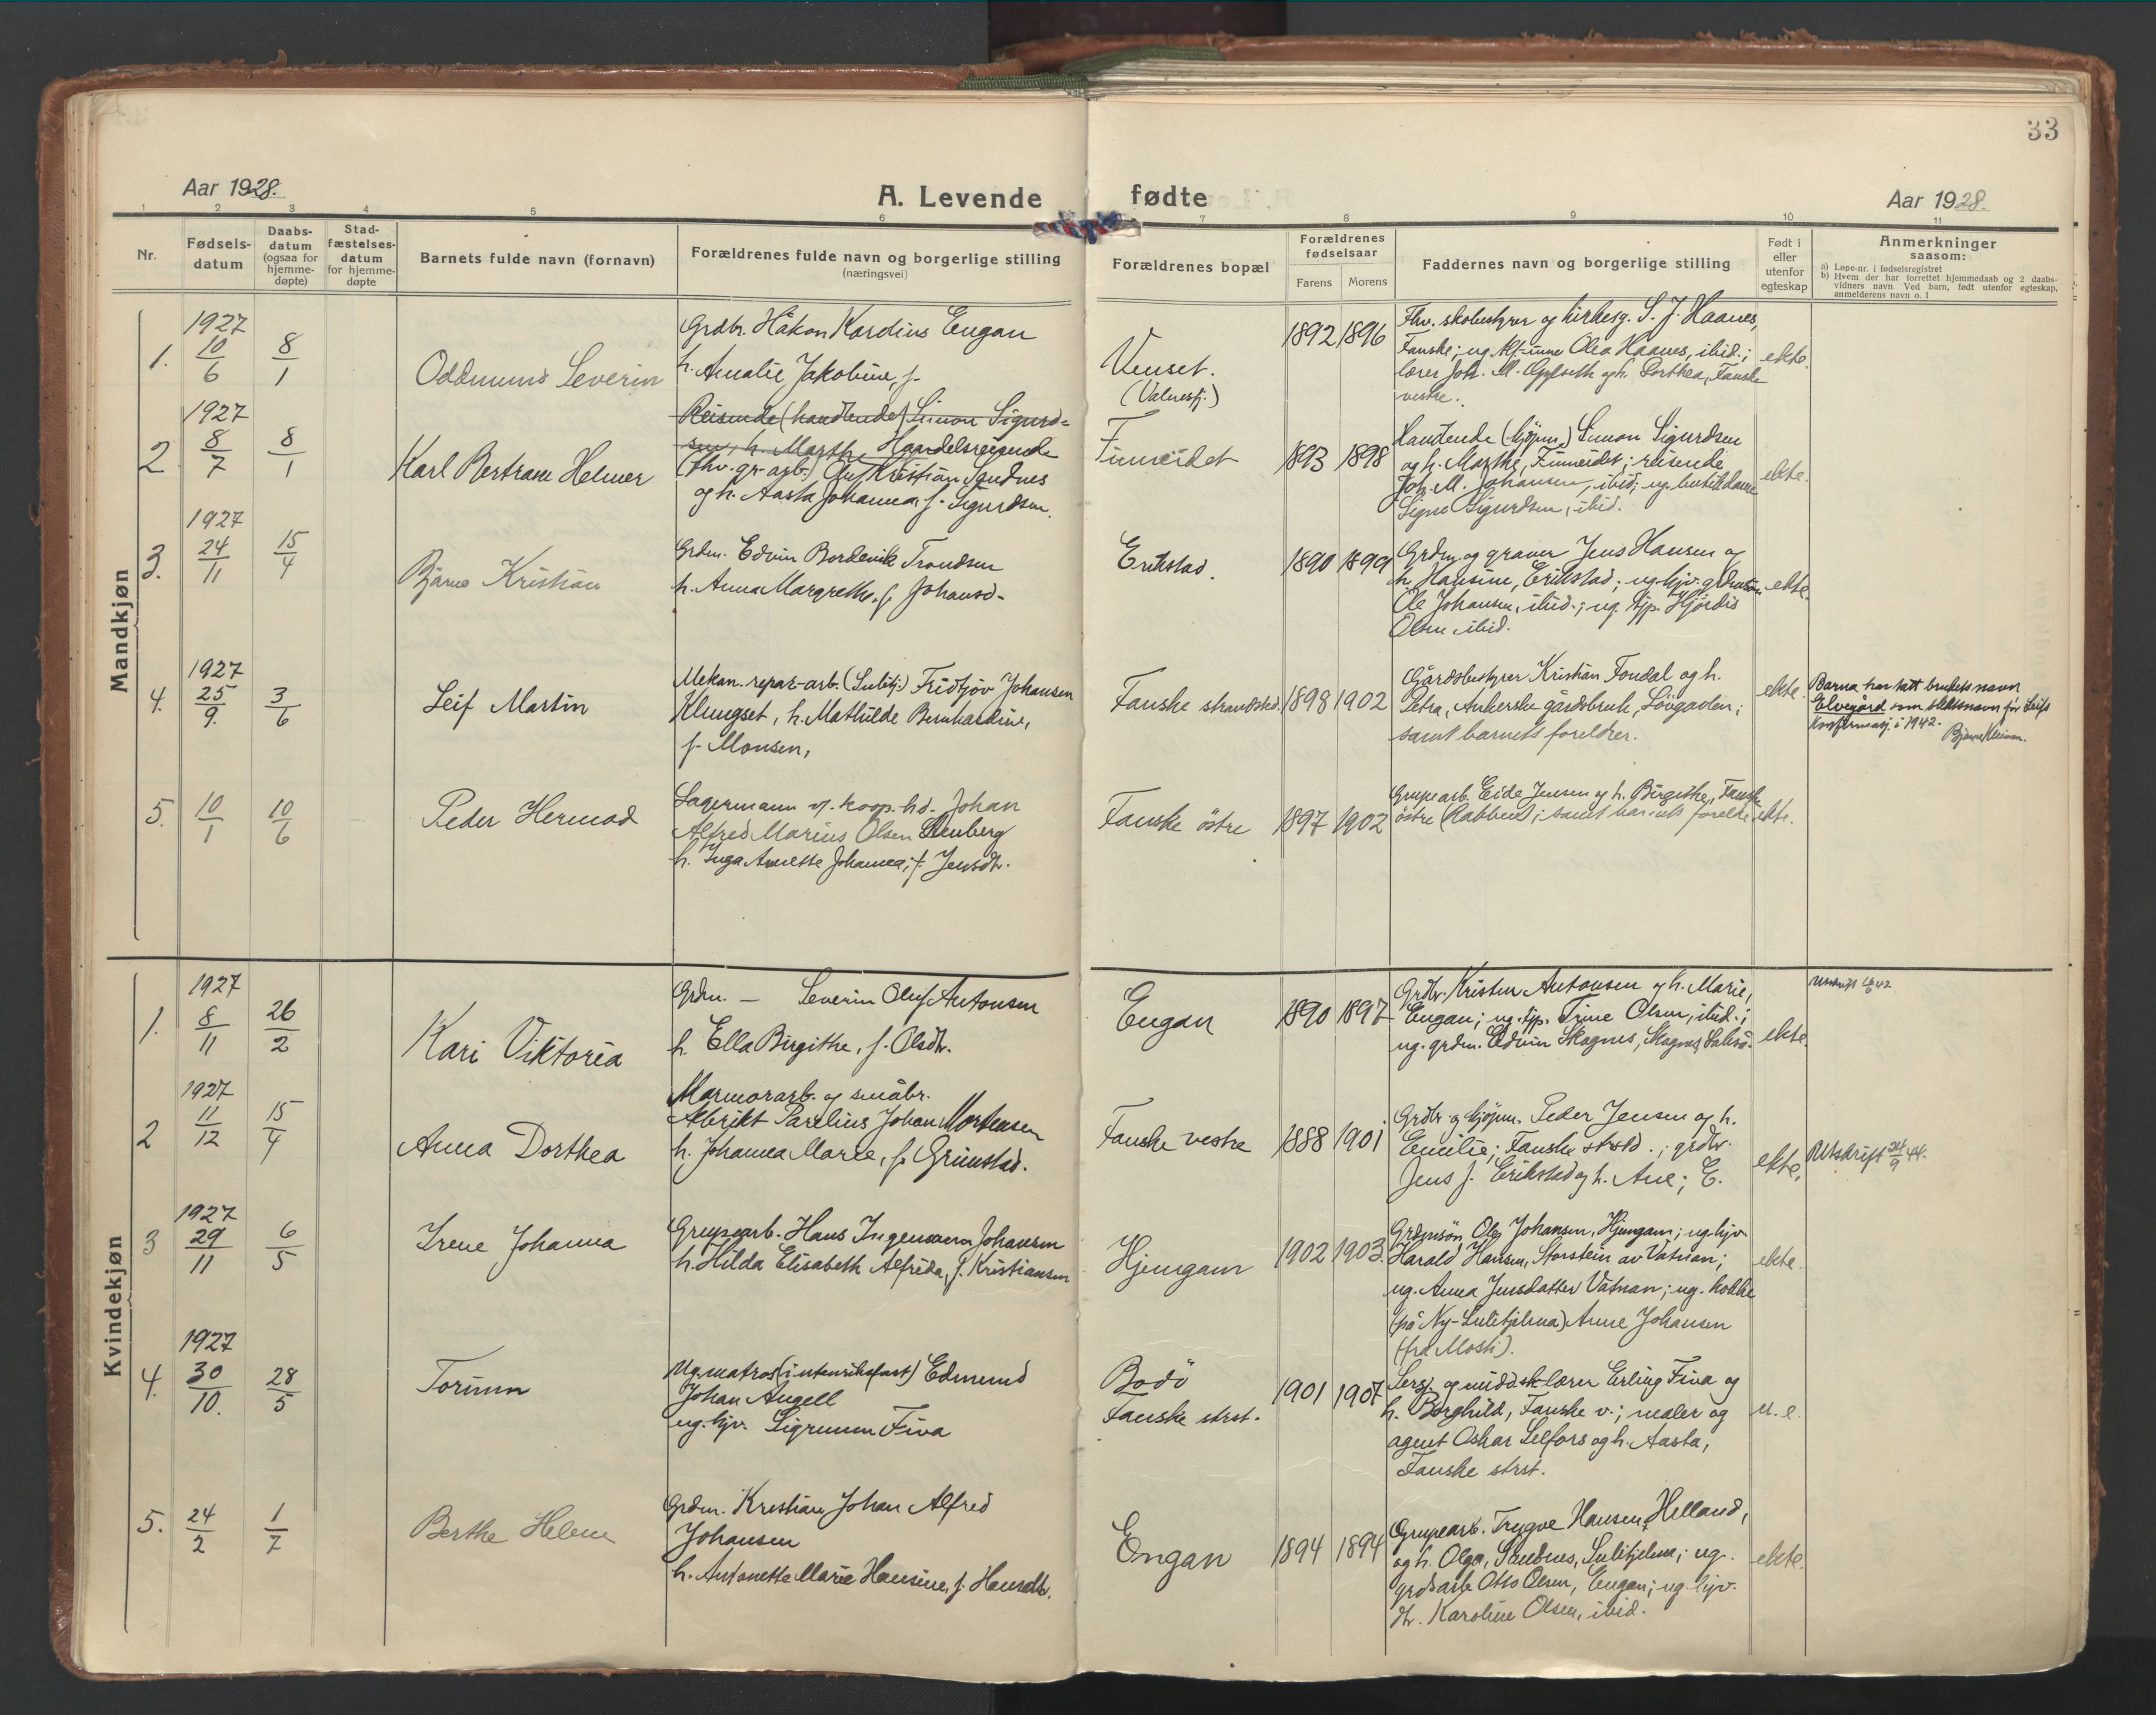 33
Aar 1928.
A. Levende fødte
Aar 1928.
1 2 3 4 5 6 7 8 9 10 11
Nr.
Fødsels-
datum
Daabs-
datum
(ogsaa for
hjemme-
døpte)
Stad-
fæstelses-
datum
for hjemme-
døpte
Barnets fulde navn (fornavn)
Forældrenes fulde navn og borgerlige stilling
(næringsvei)
Forældrenes bopæl
Forældrenes
fødselsaar
Farens Morens
Faddernes navn og borgerlige stilling
Født i
eller
utenfor
egteskap
Anmerkninger
saasom:
a) Løpe-nr. i fødselsregistret
b) Hvem der har forrettet hjemmedaab og 2 daabs-
vidners navn. Ved barn, født utenfor egteskap,
anmelderens navn o. l
Mandkjøn
1.
1927
10/6
8/1
Oddmund Severin
Grdbr. Håkon Kardius Engan
h. Amalie Jakobine, f.
Venset.
(Valnesfj.)
1892 1896
Fhv. skobestyrer og kirkesg. S. J. Haanes,
Fauske; ug. Olea Haanes, ibid.;
lærer Joh. M. og h. Dorthea, Fauske
vestre.
ekte.
2
1927
8/7
8/1
Karl Bertram Helmer
Reisende (handlende) Simon Sigurd-
sen, h. Marthe Handelsreisende
(fhv. gr.-arb.) Oluf Kristian Sandnes
og h. Aasta Johanna, f. Sigurdsen.
Finneidet
1893 1898
Handende (kjøpm.) Simon Sigurdsen
og h. Marthe, Finneidet; reisende
Joh. M. Johansen, ibid; ug. butikdame
Signe Sigurdsen, ibid.
ekte.
3.
1927
24/11
15/4
Bjarne Kristian
Grdm. Edvin Bordevik Trondsen
h. Anna Margrethe. f. Johansd.
Erikstad.
1890 1899
Grdm. og graver Jens Hansen og
h. Hansine, Erikstad; ug. hjv.
Ole Johansen, ibid.; ug. tjp. Hjørdis
Olsen ibid.
ekte.
4.
1927
25/9.
3/6
Leif Martin
Mekan. repar-arb. (Sulitj.) Fridtjov Johansen
Klungset, h. Mathilde Bernhardine,
f. Monsen,
Fauske strandsted.
1898 1902
Gårdsbestyrer Kristian Fondal og h.
Petra, Ankerske gårdsbruk, Lövgavlen;
samt barnets foreldrer.
ekte.
Barna har tatt brukets navn
Elvegård som slektsnavn før Leifs
konfirmasj. i 1942.
Bjarne Kleiven.
5.
10/1
10/6
Peder Hermod
Lagermann v/. koop. hd. Johan
Alfred Marius Olsen Stenberg
h. Inga Annette Johanna; f. Jensdt.
Fauske östre
1897 1902
Grupearb. Eide Jensen og h. Birgithe, Fauske
östre (Rabben); samt barnets foreldre
ekte.
Kvindekjøn
1.
1927
8/11
26/2
Kari Viktoria
Grdm. — Severin Oluf Antonsen
h. Ella Birgithe, f. Olsdt.
Engan
1890 1897
Grdbr. Kristen Antonsen og h. Marie,
Engan; ug. tjp. Trine Olsen, ibid.;
ug. grdm. Edvin Skagnes, Skagnes,
ekte.
Utskrift 42
2
1927
11/12
15/4
Anna Dorthea
Marmorarb. og småbr.
Albrikt Parelius Johan Mortensen
h. Johanna Marie, f. Grimstad.
Fauske vestre
1888 1901
Grdbr og kjøpm. Peder Jensen og h.
Emilie; Fauske strstd.; grdbr.
Jens J. Erikstad og h. Ane; E.
ekte,
Utskrift 24/9 44.
3
1927
29/11
6/5
Irene Johanna
Grupearb. Hans Ingemann Johansen
h. Hilda Elisabeth Alfrida, f. Kristiansen
Hjemgam
1902 1903.
Grdmsön Ole Johansen, Hjemgam; ug. hjv.
Harald Hansen, Storstein av Vatnan;
ug. Anna Jensdatter Vatnan; ug. kokke
(på Ny-Sulitjelma) Anne Johansen
(fra Mosti).
ekte.
4.
1927
30/10.
28/5
Torunn
Ug. matros (i utenriksfart) Edmund
Johan Angell
ug. hjv. Sigrunn Fiva
Bodö
Fauske strst.
1901 1907
Sersj. og middsk-lærer Erling Fiva og
h. Borghild, Fauske v.; maler og
agent Oskar Selfors og h. Aasta,
Fauske strst.
u. e.
5.
24/2
1/7
Berthe Helene
Grdm. Kristian Johan Alfred
Johansen
h. Antonette Marie Hansine, f. Hansdt.
Engan
1894 1894
Grupearb. Trygve Hansen Helland,
og h. Olga, Sandnes, Sulitjelma; ug.
grdsarb Otto Olsen, Engan; ug. hjv.
dt. Karoline Olsen, ibid.
ekte.